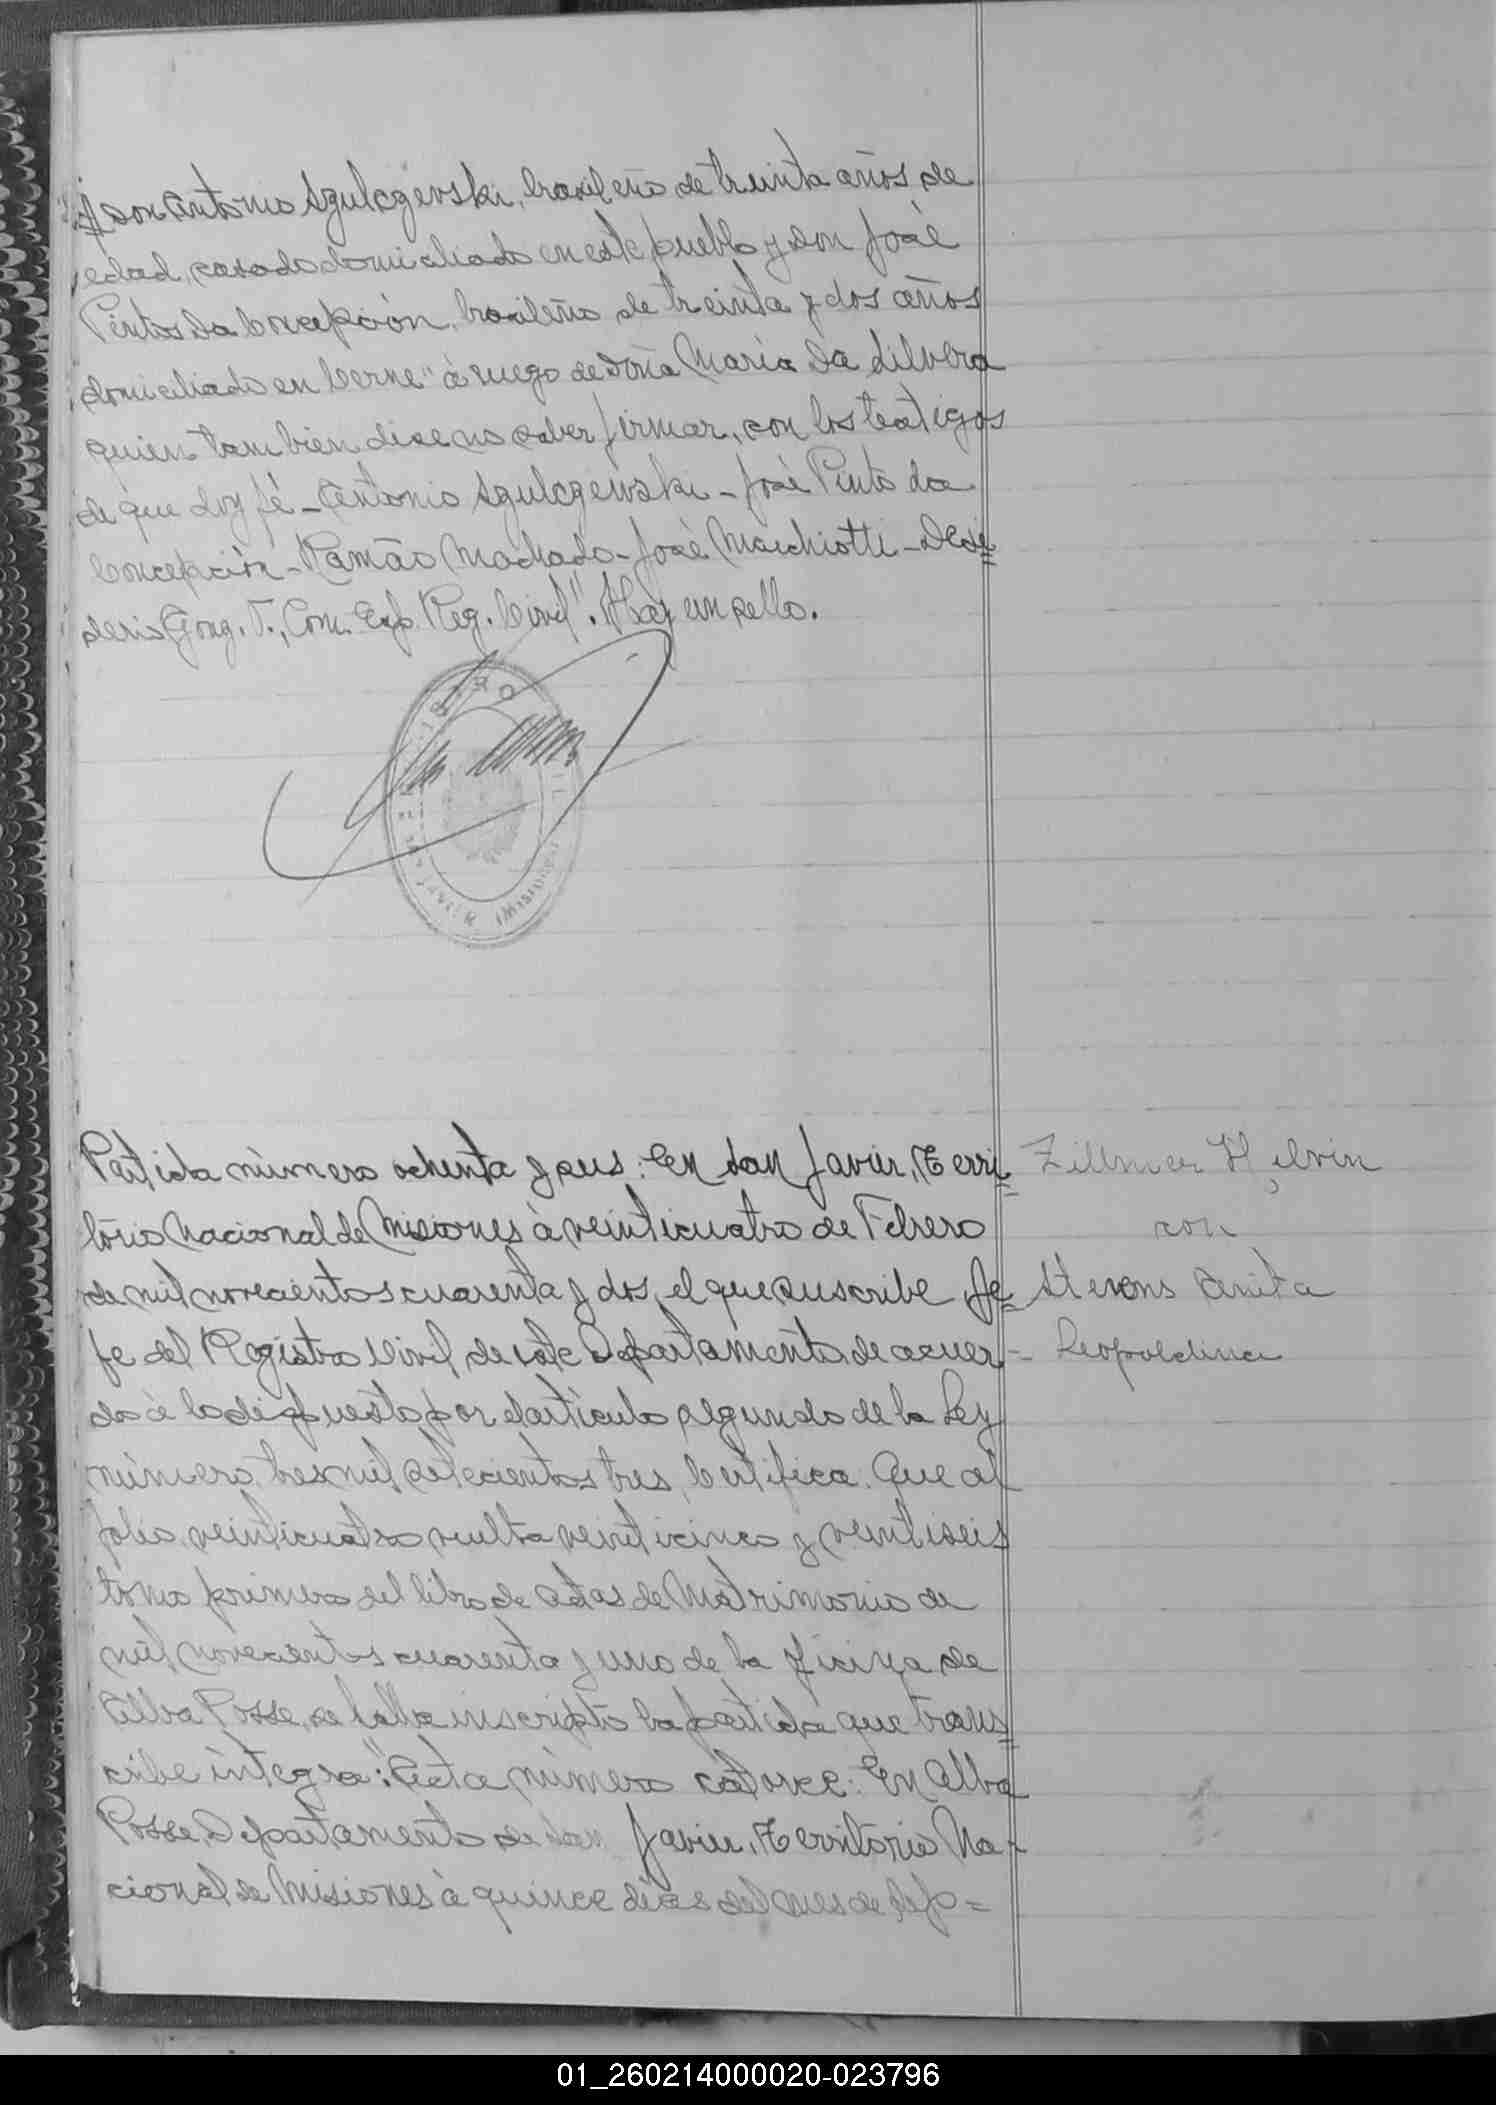 y don Antonio Szulczevski, brasileño de treinta años de
edad, casado domiciliado en este pueblo y don José
Pinto Da Concepción, brasileño de treinta y dos años
domiciliado en Cerne" à ruego de doña Maria Da Silvera
quien tambien dice no saber firmar, con los testigos
de que doy fé - Antonio Szulczewski - José Pinto da
Concepción - Ramão Machado - José Marchiotti - Desi=
derio Gonz. V., Com. Enc. Reg. Civil". Hay un sello.
REGISTRO CIVIL
SAN JAVIER MISIONES
Partida número ochenta y seis: En San Javier, Terri=
torio Nacional de Misiones à veinticuatro de Febrero
de mil novecientos cuarenta y dos, el que suscribe Je=
fe del Registro Civil, de este Departamento, de acuer-
do à lo dispuesto por el artículo segundo de la Ley
número tres mil setecientos tres, Certifica: Que al
folio veinticuatro vuelta veinticinco y veintiseis
tomo primero del libro de actas de Matrimonio de
mil novecientos cuarenta y uno de la ficina de
Alba Posse, se halla inscripto la partida que trans=
cribe íntegra: "Acta número catorce: En Alba
Posse, Departamento de San Javier, Territorio Na-
cional de Misiones à quince dias del mes de Sep=
Zillmer Helvin
con
Stevens Anita
Leopoldina
01_260214000020-023796